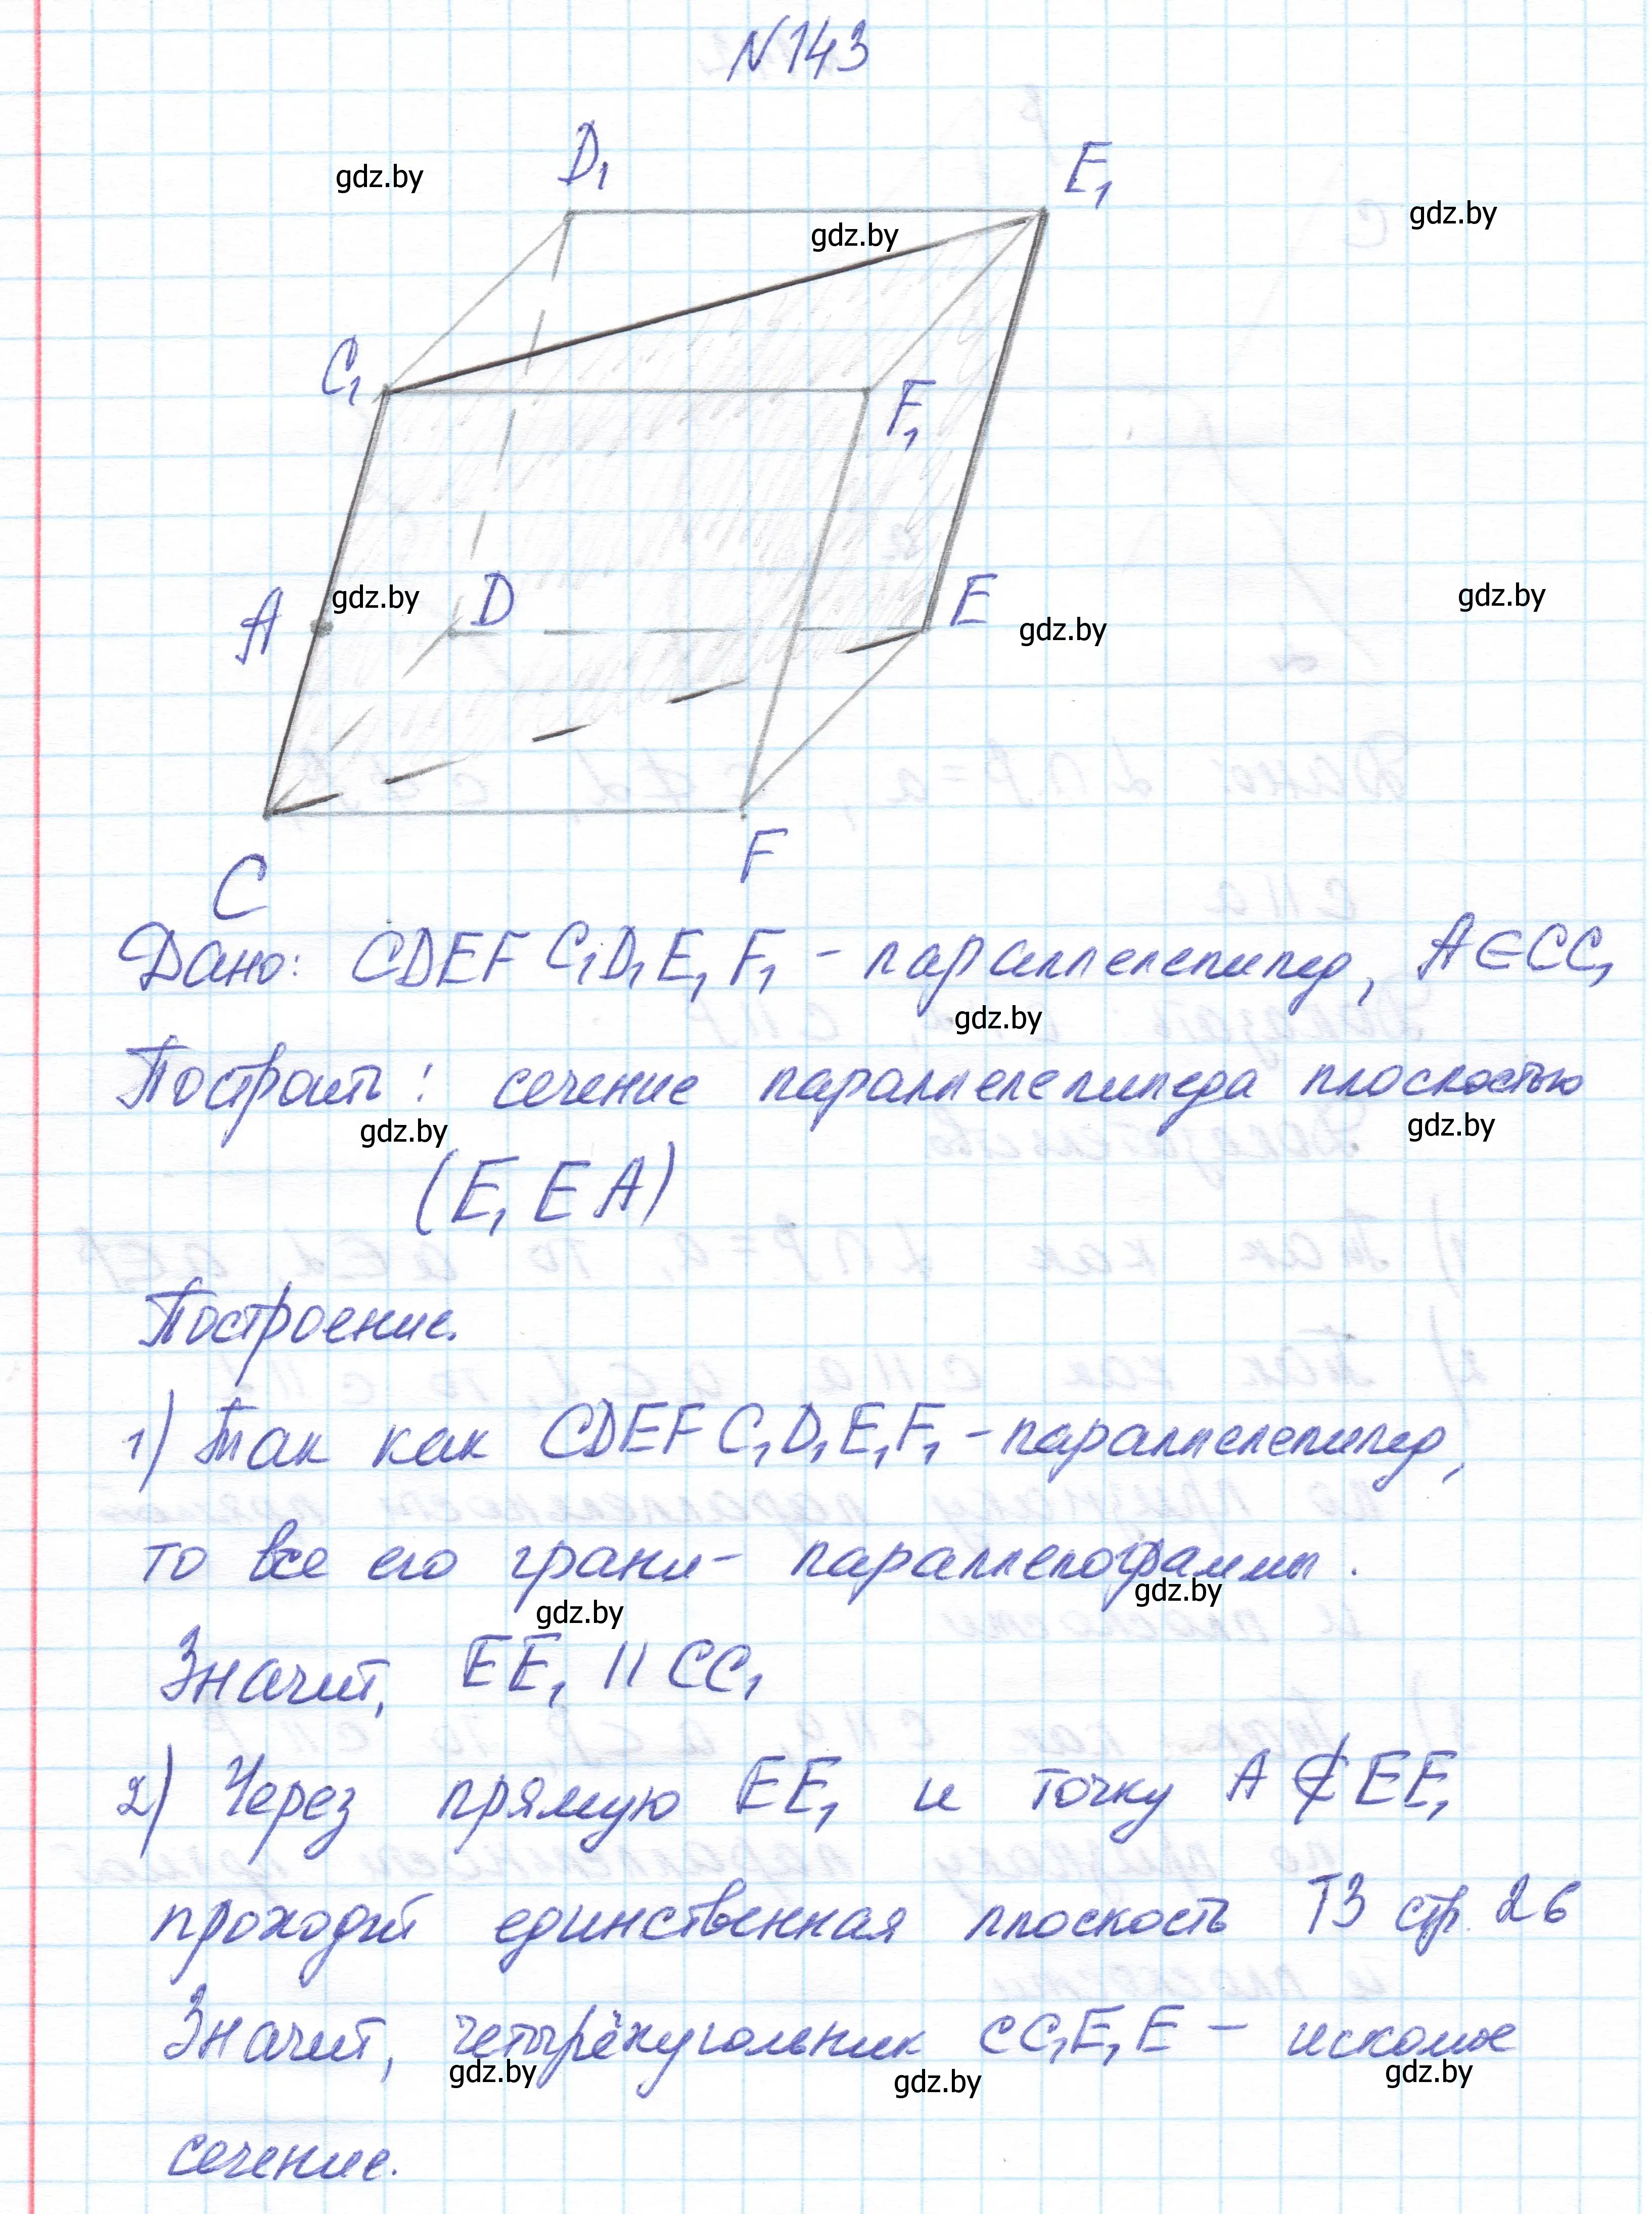 N 143
D₁
E₁
gdz.by
gdz.by
gdz.by
C₁
F₁
A
gdz.by
D
E
gdz.by
gdz.by
C
F
Дано: CDEF C₁D₁E₁F₁ - параллелепипед, A∈CC₁
gdz.by
Построить: сечение параллелепипеда плоскостью
gdz.by
gdz.by
(E₁EA)
Построение.
1) Так как CDEF C₁D₁E₁F₁ - параллелепипед,
то все его грани - параллелограммы.
gdz.by
gdz.by
Значит, EE₁ || CC₁
2) Через прямую EE₁ и точку A ∉ EE₁
проходит единственная плоскость Т3 стр. 26
Значит, четырёхугольник CC₁E₁E - искомое
gdz.by
gdz.by
gdz.by
сечение.